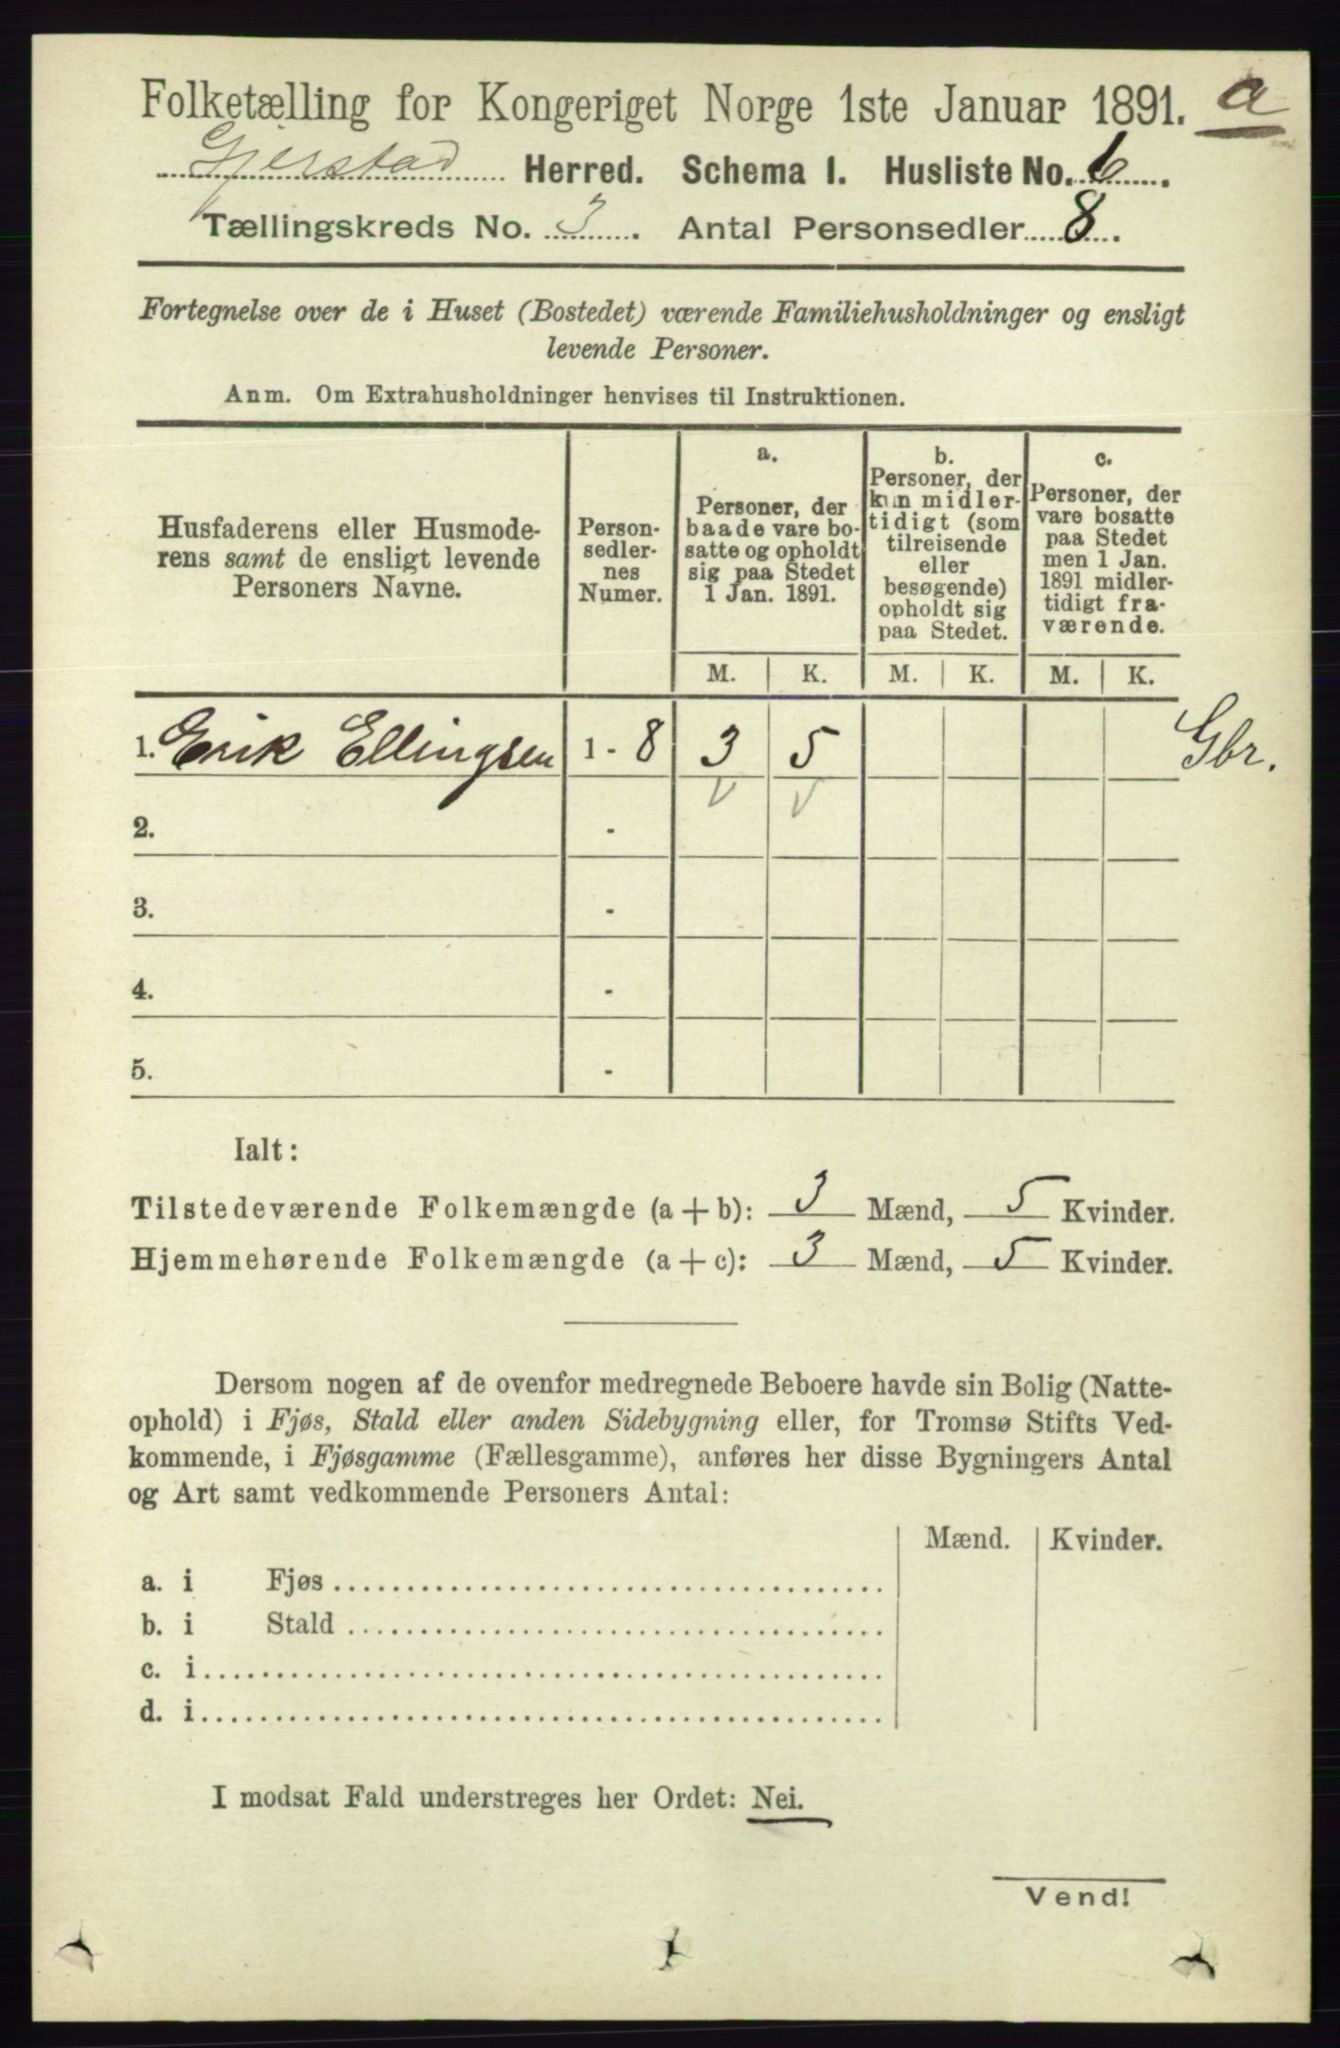 Folketælling for Kongeriget Norge 1ste Januar 1891. a
Gjerstad Herred. Schema I. Husliste No. 6.
Tællingskreds No. 3. Antal Personsedler 8.
Fortegnelse over de i Huset (Bostedet) værende Familiehusholdninger og ensligt
levende Personer.
Anm. Om Extrahusholdninger henvises til Instruktionen.
Husfaderens eller Husmode-
rens samt de ensligt levende
Personers Navne.
Person-
sedler-
nes
Numer.
a.
Personer, der
baade vare bo-
satte og opholdt
sig paa Stedet
1 Jan. 1891.
b.
Personer, der
kun midler-
tidigt (som
tilreisende
eller
besøgende)
opholdt sig
paa Stedet.
c.
Personer, der
vare bosatte
paa Stedet
men 1 Jan.
1891 midler-
tidigt fra-
værende.
M. K. M. K. M. K.
1. Erik Ellingsen 1 - 8 3 5 Gbr.
2. -
3. -
4. -
5. -
Ialt:
Tilstedeværende Folkemængde (a + b): 3 Mænd, 5 Kvinder.
Hjemmehørende Folkemængde (a + c): 3 Mænd, 5 Kvinder.
Dersom nogen af de ovenfor medregnede Beboere havde sin Bolig (Natte-
ophold) i Fjøs, Stald eller anden Sidebygning eller, for Tromsø Stifts Ved-
kommende, i Fjøsgamme (Fællesgamme), anføres her disse Bygningers Antal
og Art samt vedkommende Personers Antal:
Mænd. Kvinder.
a. i Fjøs
b. i Stald
c. i
d. i
I modsat Fald understreges her Ordet: Nei.
Vend!